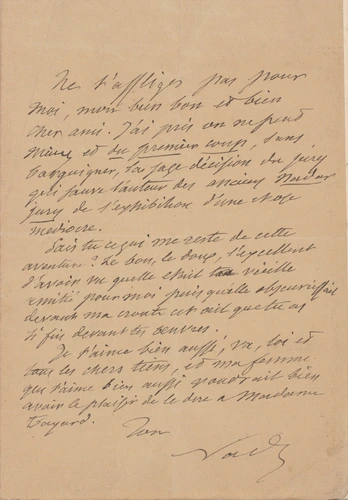 Ne t'affliges pas pour
moi, mon bien bon et bien
cher ami. J'ai pris on ne peut
mieux et du premier coup, sans
barguigner, la sage décision du jury
qui sauve l'auteur des anciens Nadar
jury, de l'exhibition d'une chose
médiocre.
Sais tu ce qui me reste de cette
aventure? Le bon, le doux, l'excellent
d'avoir vu quelle était ta vieille
amitié pour moi puisqu'elle
devant ma croute cet œil que tu as
si fin devant tes œuvres.
Je t'aime bien aussi, va, toi et
tous les chers tiens, et ma femme
qui t'aime bien aussi voudrait bien
avoir le plaisir de le dire à Madame
Ton